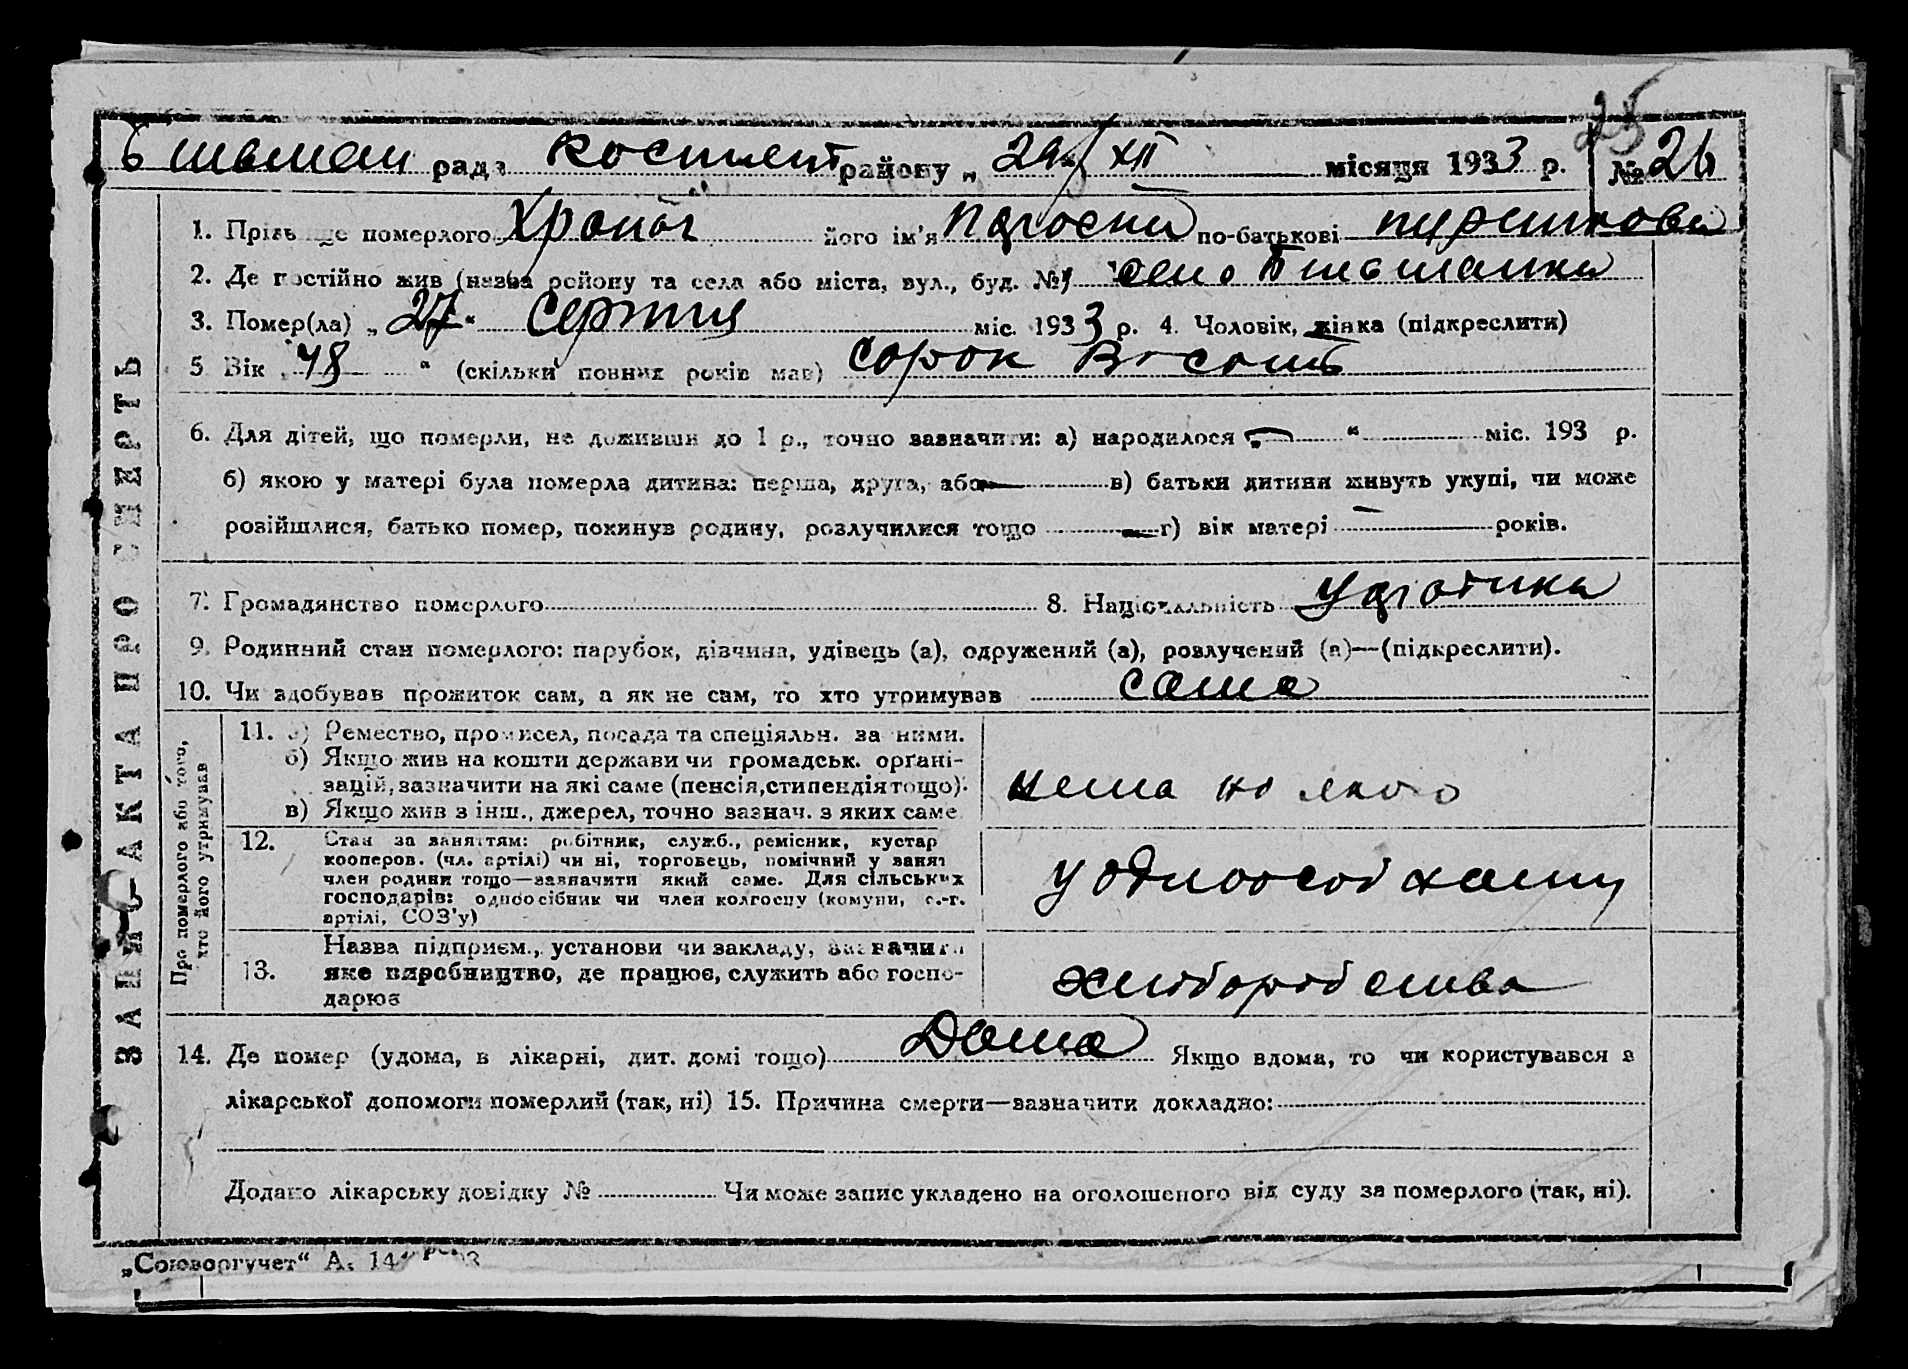 25
рада Костянт району „ 29/XII місяця 1933 р. № 26
1. Прізвище померлого його ім'я по-батькові
2. Де постійно жив (назва району та села або міста, вул., буд. № село
3. Помер(ла) „ 27 “ Серпня міс. 1933 р. 4. Чоловік, жінка (підкреслити)
5. Вік „ 48 “ (скільки повних років мав) сорок Восомь
6. Для дітей, що померли, не доживши до 1 р., точно зазначити: а) народилося „ — “ міс. 193 р.
б) якою у матері була померла дитина: перша, друга, або — в) батьки дитини живуть укупі, чи може
розійшлися, батько помер, покинув родину, розлучилися тощо — г) вік матері — років.
7. Громадянство померлого 8. Національність
9. Родинний стан померлого: парубок, дівчина, удівець (а), одружений (а), розлучений (а)—(підкреслити).
10. Чи здобував прожиток сам, а як не сам, то хто утримував сама
ЗАПИС АКТА ПРО СМЕРТЬ
Про померлого або того,
хто його утримував
11. а) Ремество, промисел, посада та спеціяльн. за ними.
б) Якщо жив на кошти держави чи громадськ. орґані-
зацій, зазначити на які саме (пенсія, стипендія тощо).
в) Якщо жив з інш., джерел, точно зазнач. з яких саме
12. Стан за заняттям: робітник, служб., ремісник, кустар
кооперов. (чл. артілі) чи ні, торговець, помічний у занят
член родини тощо—зазначити який саме. Для сільських
господарів: одноосібник чи член колгоспу (комуни, с.-г.
артілі, СОЗ'у)
13. Назва підприєм., установи чи закладу, зазначити
яке виробництво, де працює, служить або госпо-
дарює
14. Де помер (удома, в лікарні, дит. домі тощо) Дома Якщо вдома, то чи користувався з
лікарської допомоги померлий (так, ні) 15. Причина смерти—зазначити докладно:
Додано лікарську довідку № Чи може запис укладено на оголошеного від суду за померлого (так, ні).
„Союзоргучет“